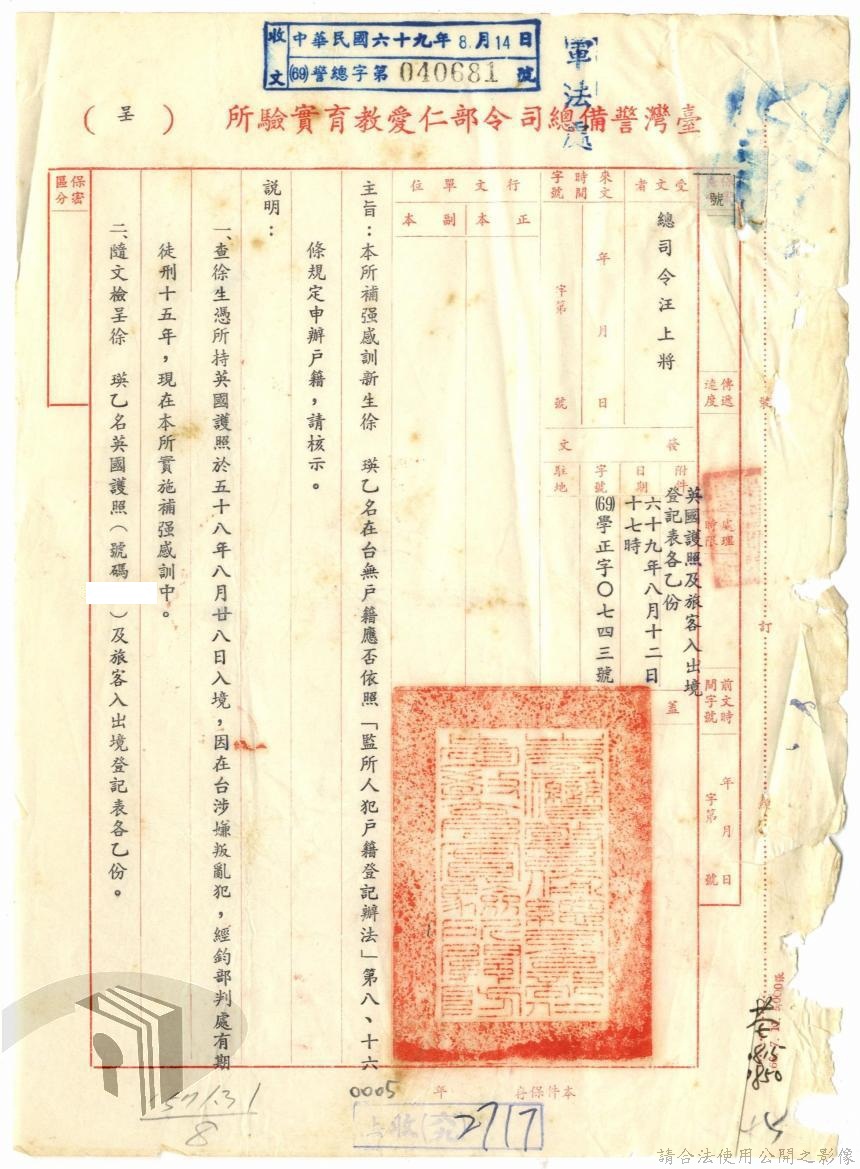 收文 中華民國六十九年8月14日
(69)警總字第040681號
軍法處
臺灣警備總司令部仁愛教育實驗所（呈）
保密區分
傳遞速度
處理時限
前文時間字號
年月日
字第號
受文者
總司令汪上將
來文時間字號
年月日
字第號
行文單位
正本
副本
發文
附件
英國護照及旅客入出境登記表各乙份
日期
六十九年八月十二日十七時
字號
(69)學正字〇七四三號
駐地
蓋
主旨：本所補强感訓新生徐　瑛乙名在台無戶籍應否依照「監所人犯戶籍登記辦法」第八、十六
條規定申辦戶籍，請核示。
說明：
一、查徐生憑所持英國護照於五十八年八月廿八日入境，因在台涉嫌叛亂犯，經鈞部判處有期
徒刑十五年，現在本所實施補强感訓中。
二、隨文檢呈徐　瑛乙名英國護照（號碼　　）及旅客入出境登記表各乙份。
裝
訂
線
號
本件保存年
0005
2717
請合法使用公開之影像